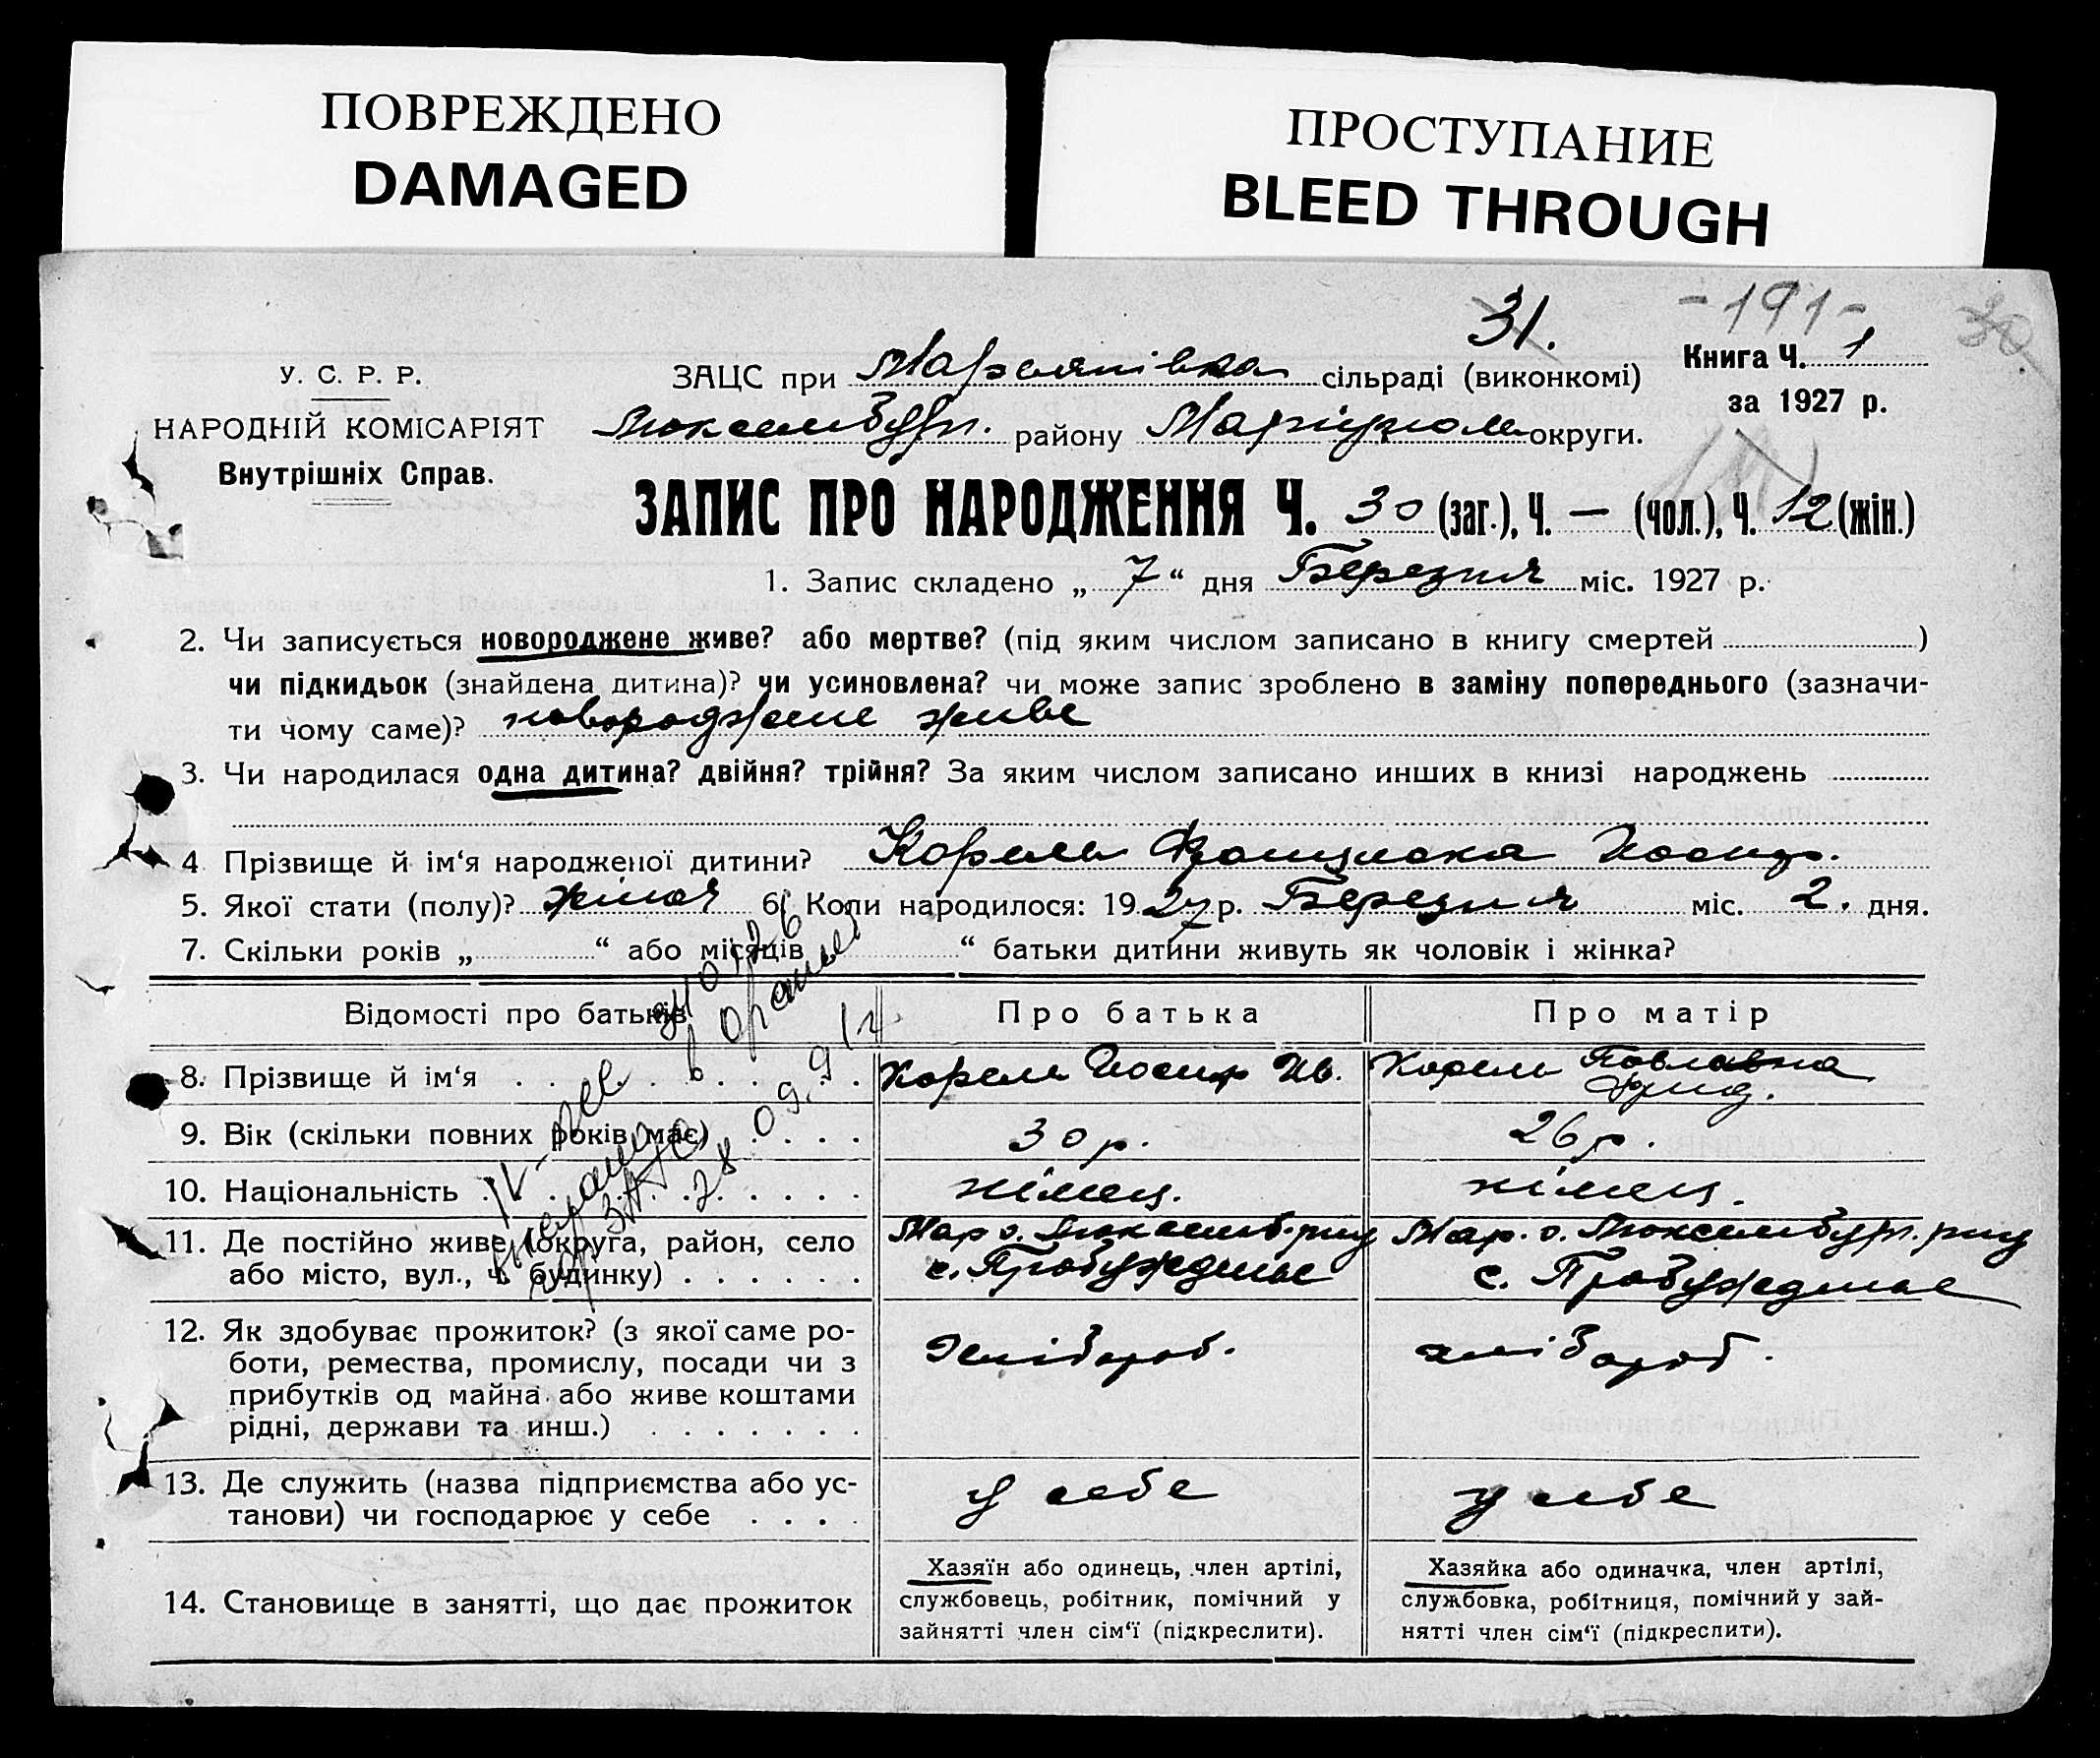 ПОВРЕЖДЕНО
DAMAGED
ПРОСТУПАНИЕ
BLEED THROUGH
31.
-191-
30
У. С. Р. Р.
НАРОДНІЙ КОМІСАРІЯТ
Внутрішніх Справ.
ЗАЦС при Мар'янівка сільраді (виконкомі)
Книга Ч. 1
за 1927 р.
Люксембург. району Маріупол округи.
ЗАПИС ПРО НАРОДЖЕННЯ Ч. 30 (заг.), Ч. — (чол.), Ч. 12 (жін.)
1. Запис складено „ 7 “ дня Березня міс. 1927 р.
2. Чи записується новороджене живе? або мертве? (під яким числом записано в книгу смертей )
чи підкидьок (знайдена дитина)? чи усиновлена? чи може запис зроблено в заміну попереднього (зазначи-
ти чому саме)? новороджене живе
3. Чи народилася одна дитина? двійня? трійня? За яким числом записано инших в книзі народжень
4 Прізвище й ім‘я народженої дитини? Корель Францыска Иосип.
5. Якої стати (полу)? жіноч 6. Коли народилося: 1927 р. Березня міс. 2. дня.
7. Скільки років „ “ або місяців “ батьки дитини живуть як чоловік і жінка?
Відомості про батьків
Про батька
Про матір
8. Прізвище й ім‘я
Корель Иосип Ив.
Корель Павлавна
Фрид.
9. Вік (скільки повних років має)
30 р.
26 р.
10. Національність
німец.
німец.
11. Де постійно живе (округа, район, село
або місто, вул., ч. будинку)
Мар о. Люксемб. рну
с. Пробуждение
Мар. о. Люксембург. рну
с. Пробуждение
12. Як здобуває прожиток? (з якої саме ро-
боти, ремества, промислу, посади чи з
прибутків од майна або живе коштами
рідні, держави та инш.)
хлібороб.
хлібороб.
13. Де служить (назва підприємства або ус-
танови) чи господарює у себе
у себе
у себе
14. Становище в занятті, що дає прожиток
Хазяїн або одинець, член артілі,
службовець, робітник, помічний у
зайнятті член сім‘ї (підкреслити).
Хазяйка або одиначка, член артілі,
службовка, робітниця, помічний у зай-
нятті член сім‘ї (підкреслити).